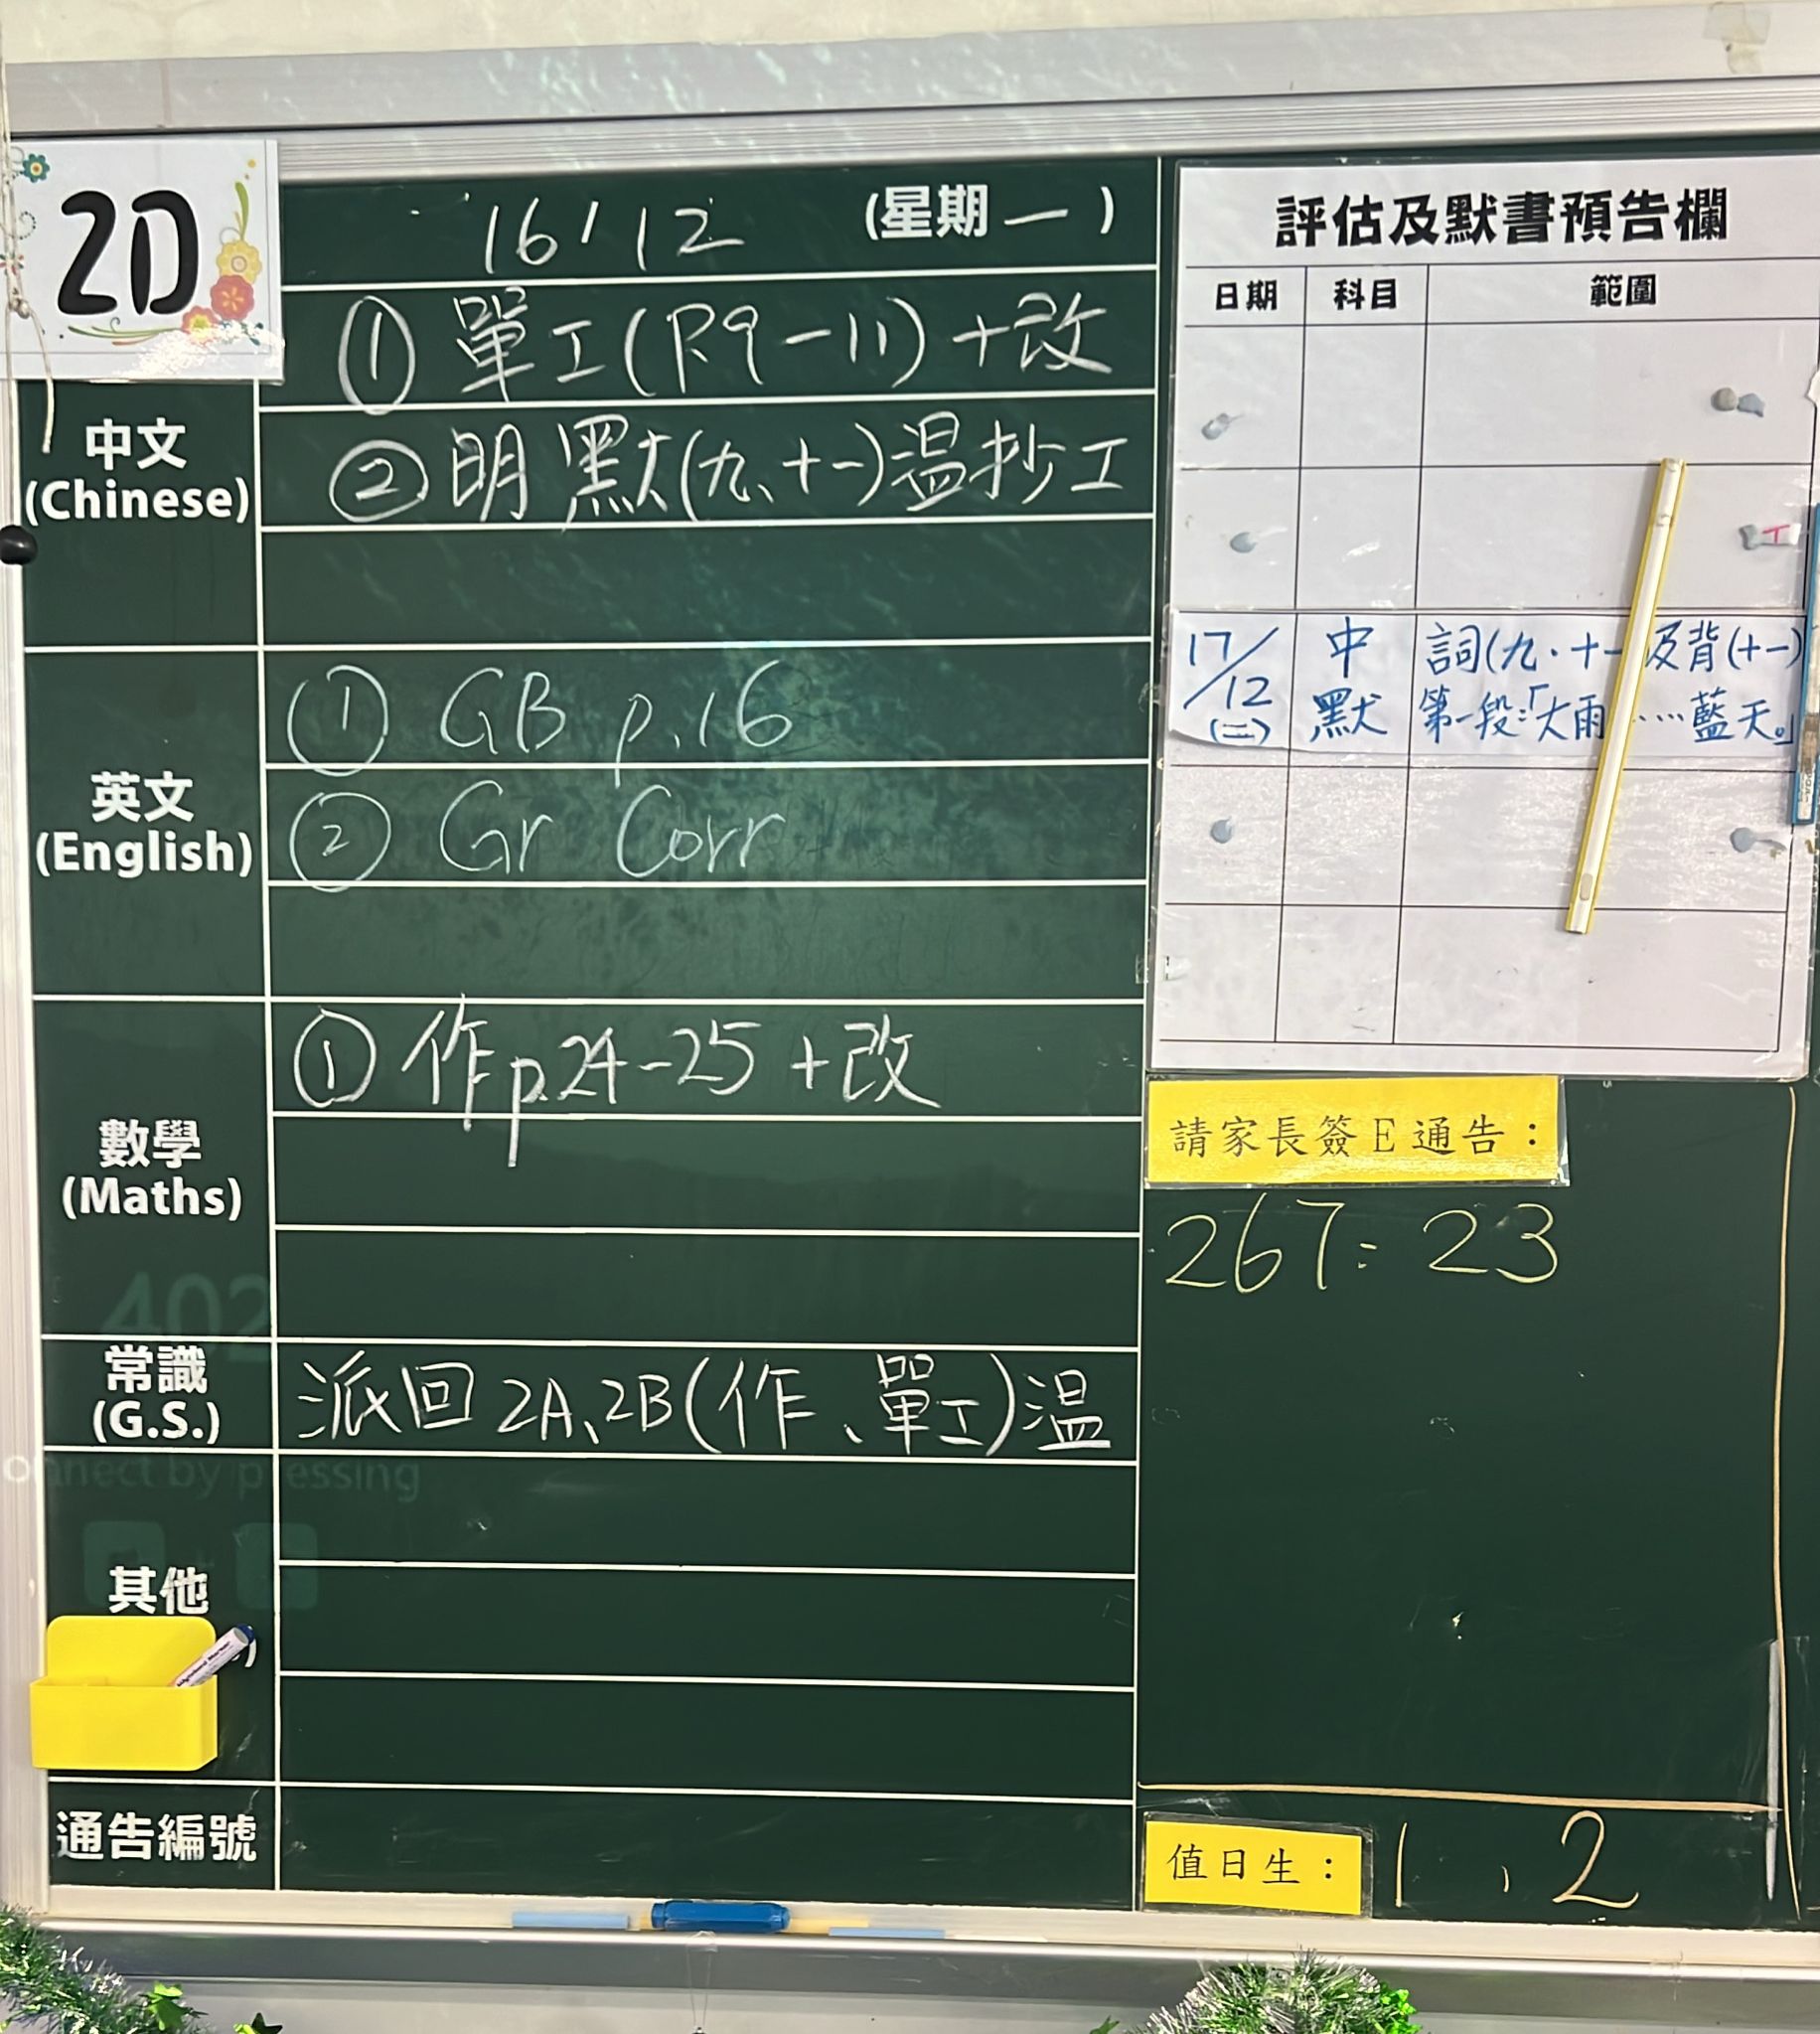 2D
16/12 (星期一)
① 單工(P.9-11)+改
② 明默(九、十一)温抄工
中文
(Chinese)
① GB p.16
② Gr Corr
英文
(English)
① 作p.24-25+改
數學
(Maths)
常識
(G.S.)
派回2A、2B(作、單工)温
其他
通告編號
評估及默書預告欄
日期 科目 範圍
17/12 (二) 中默 詞(九.十一 及背(十一)
第一段:「大雨……藍天。」
請家長簽E通告:
267: 23
值日生: 1 , 2
402
onnect by pressing